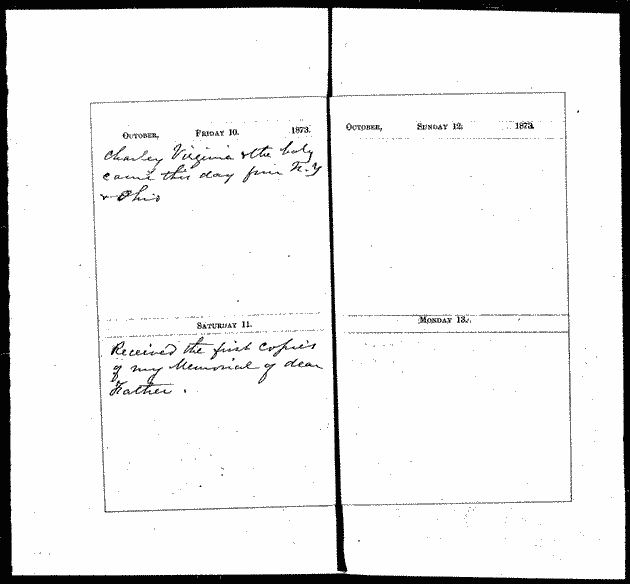 OCTOBER, FRIDAY 10. 1873.
Charley Virginia & the baby
came this day from N.Y
& Ohio
SATURDAY 11.
Received the first copies
of my Memorial of dear
Father.
OCTOBER, SUNDAY 12. 1873.
MONDAY 13.